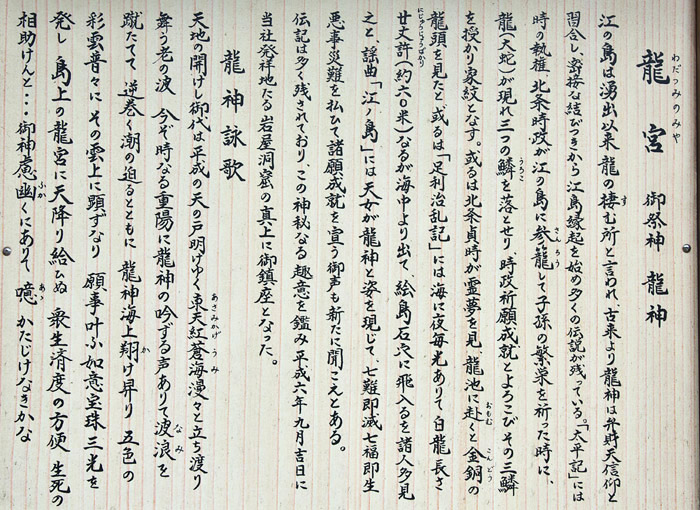 わだつみのみや
龍宮 御祭神 龍神
江の島は湧出以来 龍の棲む所と言われ、古来より龍神は弁財天信仰と
習合し、密接な結びつきから江島縁起を始め多くの伝説が残っている。「太平記」には
時の執権、北条時政が江の島に参籠して子孫の繁栄を祈った時に、
龍(大蛇)が現れ三つの鱗を落とせり 時政祈願成就とよろこびその三鱗
を授かり家紋となす。或るは北条貞時が霊夢を見、龍池に赴くと金銅の
龍頭を見たと、或るは「足利治乱記」には海に夜毎光ありて、白龍長さ
廿丈許(約六〇米)なるが海中より出て、絵島石穴に飛入るを諸人多見
之と、謡曲「江ノ島」には天女が龍神と姿を現じて、七難即滅七福即生
悪事災難を払ひて諸願成就を宣う御声も新たに聞こえとある。
伝記は多く残されており、この神秘なる趣意を鑑み平成六年九月吉日に
当社発祥地たる岩屋洞窟の真上に御鎮座となった。
龍神詠歌
天地の開けし御代は平成の天の戸明けゆく東天紅蒼海漫々と立ち渡り
舞う老の波 今ぞ時なる重陽に龍神の吟ずる声ありて波浪を
蹴たてて 逆巻く潮の迫るとともに 龍神海上翔け昇り 五色の
彩雲普々に その雲上に顕ずなり 願事叶ふ如意宝珠三光を
発し 島上の龍宮に天降り給ひぬ 衆生済度の方便 生死の
相助けんと・・・御神慮幽くにありて 噫 かたじけなきかな